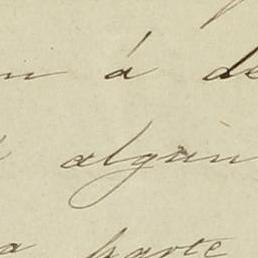 á de
algun
parte